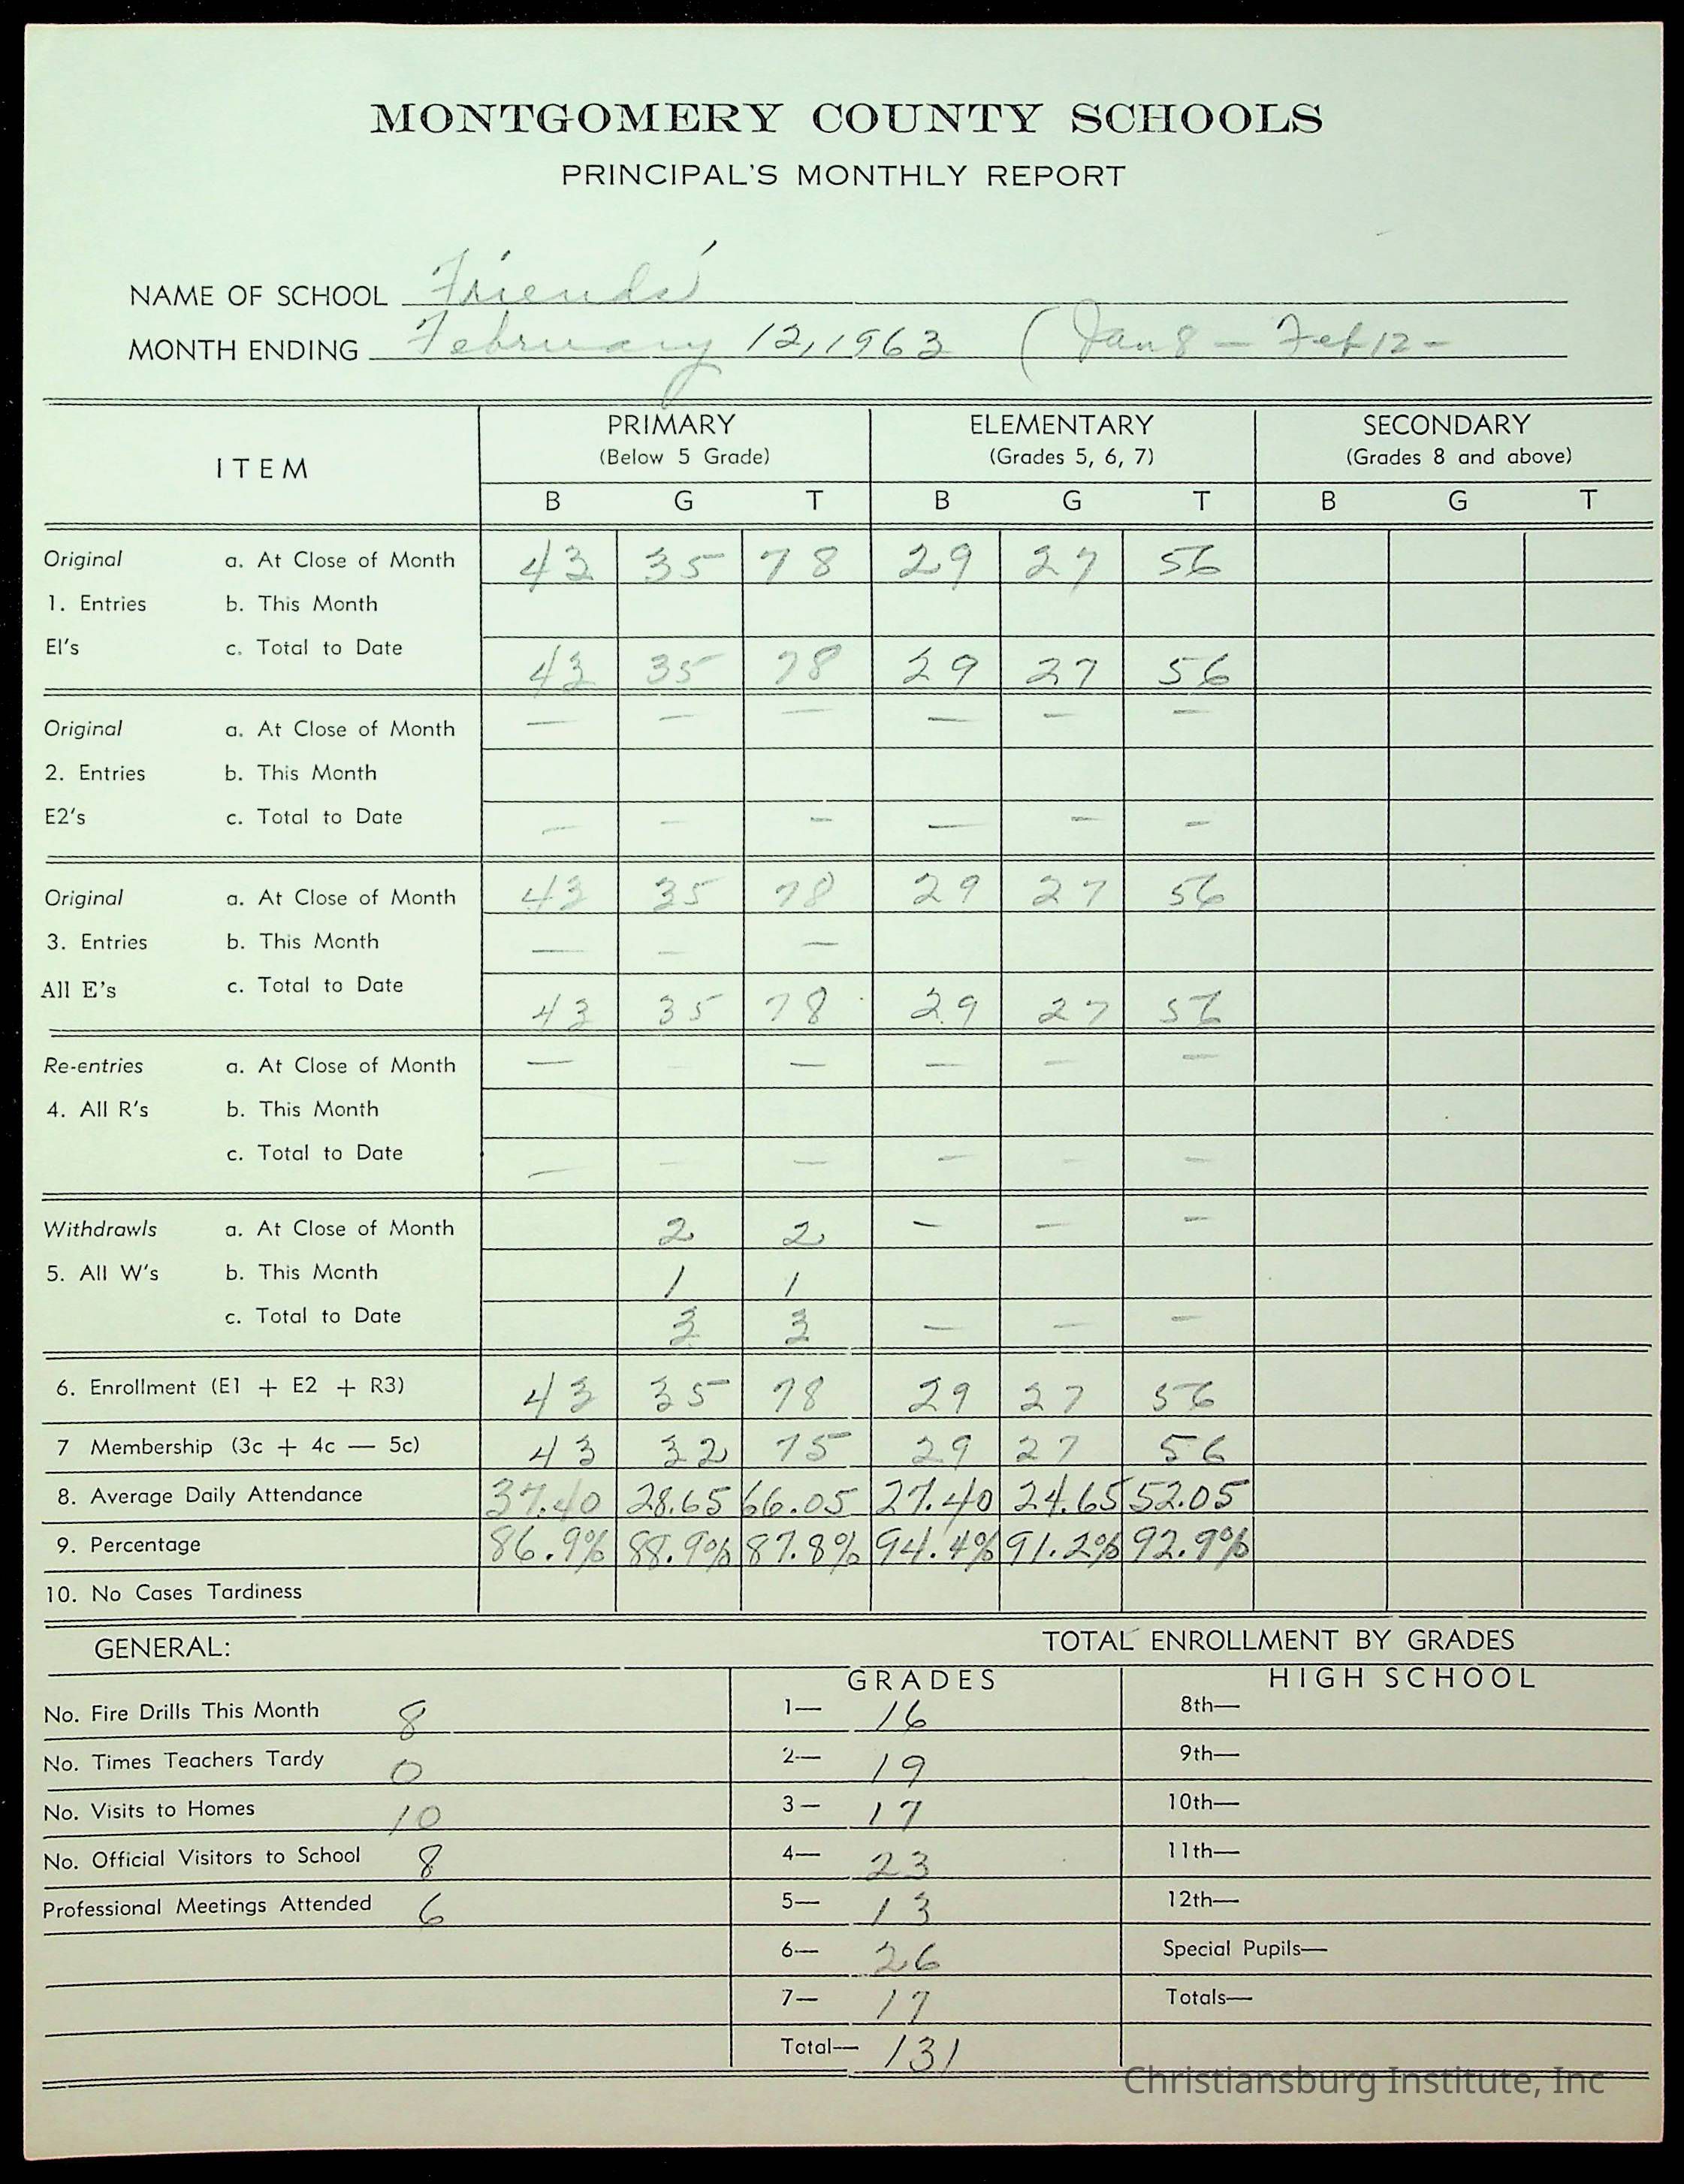 MONTGOMERY COUNTY SCHOOLS
PRINCIPAL'S MONTHLY REPORT
NAME OF SCHOOL Friends'
MONTH ENDING February 12, 1963 (Jan 8 — Feb 12 -
ITEM PRIMARY (Below 5 Grade) ELEMENTARY (Grades 5, 6, 7) SECONDARY (Grades 8 and above)
B G T B G T B G T
Original a. At Close of Month 43 35 78 29 27 56
1. Entries b. This Month
El's c. Total to Date 43 35 78 29 27 56
Original a. At Close of Month — — — — — —
2. Entries b. This Month
E2's c. Total to Date — — — — — —
Original a. At Close of Month 43 35 78 29 27 56
3. Entries b. This Month — — —
All E's c. Total to Date 43 35 78 29 27 56
Re-entries a. At Close of Month — — — — — —
4. All R's b. This Month
c. Total to Date — — — — — —
Withdrawls a. At Close of Month 2 2 — — —
5. All W's b. This Month 1 1
c. Total to Date 3 3 — — —
6. Enrollment (E1 + E2 + R3) 43 35 78 29 27 56
7 Membership (3c + 4c — 5c) 43 32 75 29 27 56
8. Average Daily Attendance 37.40 28.65 66.05 27.40 24.65 52.05
9. Percentage 86.9% 88.9% 87.8% 94.4% 91.2% 92.9%
10. No Cases Tardiness
GENERAL: TOTAL ENROLLMENT BY GRADES
GRADES HIGH SCHOOL
No. Fire Drills This Month 8 1— 16 8th—
No. Times Teachers Tardy 0 2— 19 9th—
No. Visits to Homes 10 3— 17 10th—
No. Official Visitors to School 8 4— 23 11th—
Professional Meetings Attended 6 5— 13 12th—
6— 26 Special Pupils—
7— 17 Totals—
Total— 131
Christiansburg Institute, Inc